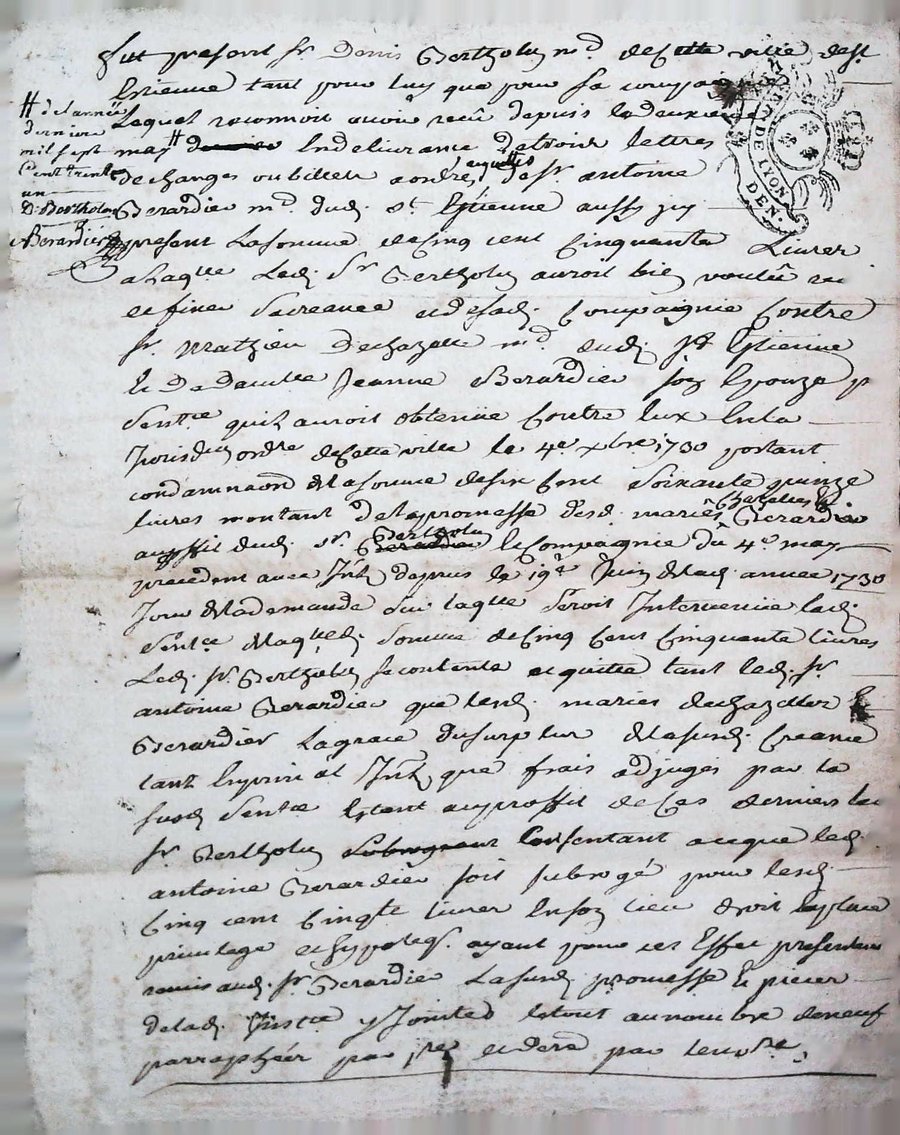 fut present sr. Denis Bertholy md. de cette ville de st.
Etienne tant pour luy que pour sa compa
Lequel reconnoit avoir recu depuis le deuxieme
may # derniere En delivrance de trois lettres
de changes ou billets a ordre, acquittes de sr. antoine
Berardier md. dud. st. Etienne aussy icy
present La somme de Cinq cent Cinquante Livres
a Laqlle Led. Sr. Bertholy auroit bien voulû
sa creance et de sad. Compagnie Contre
sr. Mathieu Dechazette md. dud. st. Etienne
et De Damlle Jeanne Berardier son Epouze p
Sentce quil auroit obtenue Contre Eux En la
Jurisdon ordre de cette ville le 4e xbre 1730 portant
condamnaon de la somme de six Cent Soixante quinze
livres montant de la promesse desd. mariés Chazettes & Berardier
au proffit dud. sr. Berardier Bertholy & Compagnie du 4e may
precedent avec Jnts depuis le 19e Juin de lad. année 1730
Jour de la demande Sur laqlle Seroit Intervenue lad.
Sentce de laqlle somme de Cinq Cens Cinquante livres
Led. sr. Bertholy se contente et quitte tant led. sr.
antoine Berardier que lesd. maries dechazettes &
Berardier La grace du surplus de la susd. Creance
tant En prin al Jnts que frais adjugés par la
susd. Sentce Estant au proffit de Ces derniers
sr. Bertholy Consentant a ce que led.
antoine Berardier soit subrogé pour lesd.
Cinq cent Cinqte livres En son lieu droit Et place
privilege et hypoteq. ayant pour cet Effet presentemt
remis aud. sr. Berardier La susd. promesse Et pieces
de lad. Jnstce y Jointes Le tout au nombre de neuf
parraphées par pre et dere par le nore.
# de l'année
derniere
mil sept
Cent trente
un
D. Bertholy
Berardier
DE LYON
DEN.